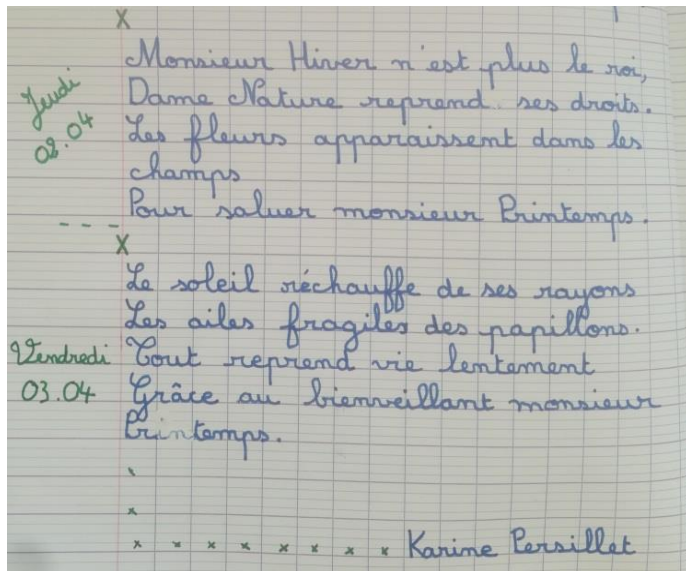 Monsieur Hiver n'est plus le roi,
Jeudi
Dame Nature reprend ses droits.
02.04
Les fleurs apparaissent dans les
champs
Pour saluer monsieur Printemps.
Le soleil réchauffe de ses rayons
Les ailes fragiles des papillons.
Vendredi
Tout reprend vie lentement
03.04
Grâce au bienveillant monsieur
Printemps.
Karine Persillet